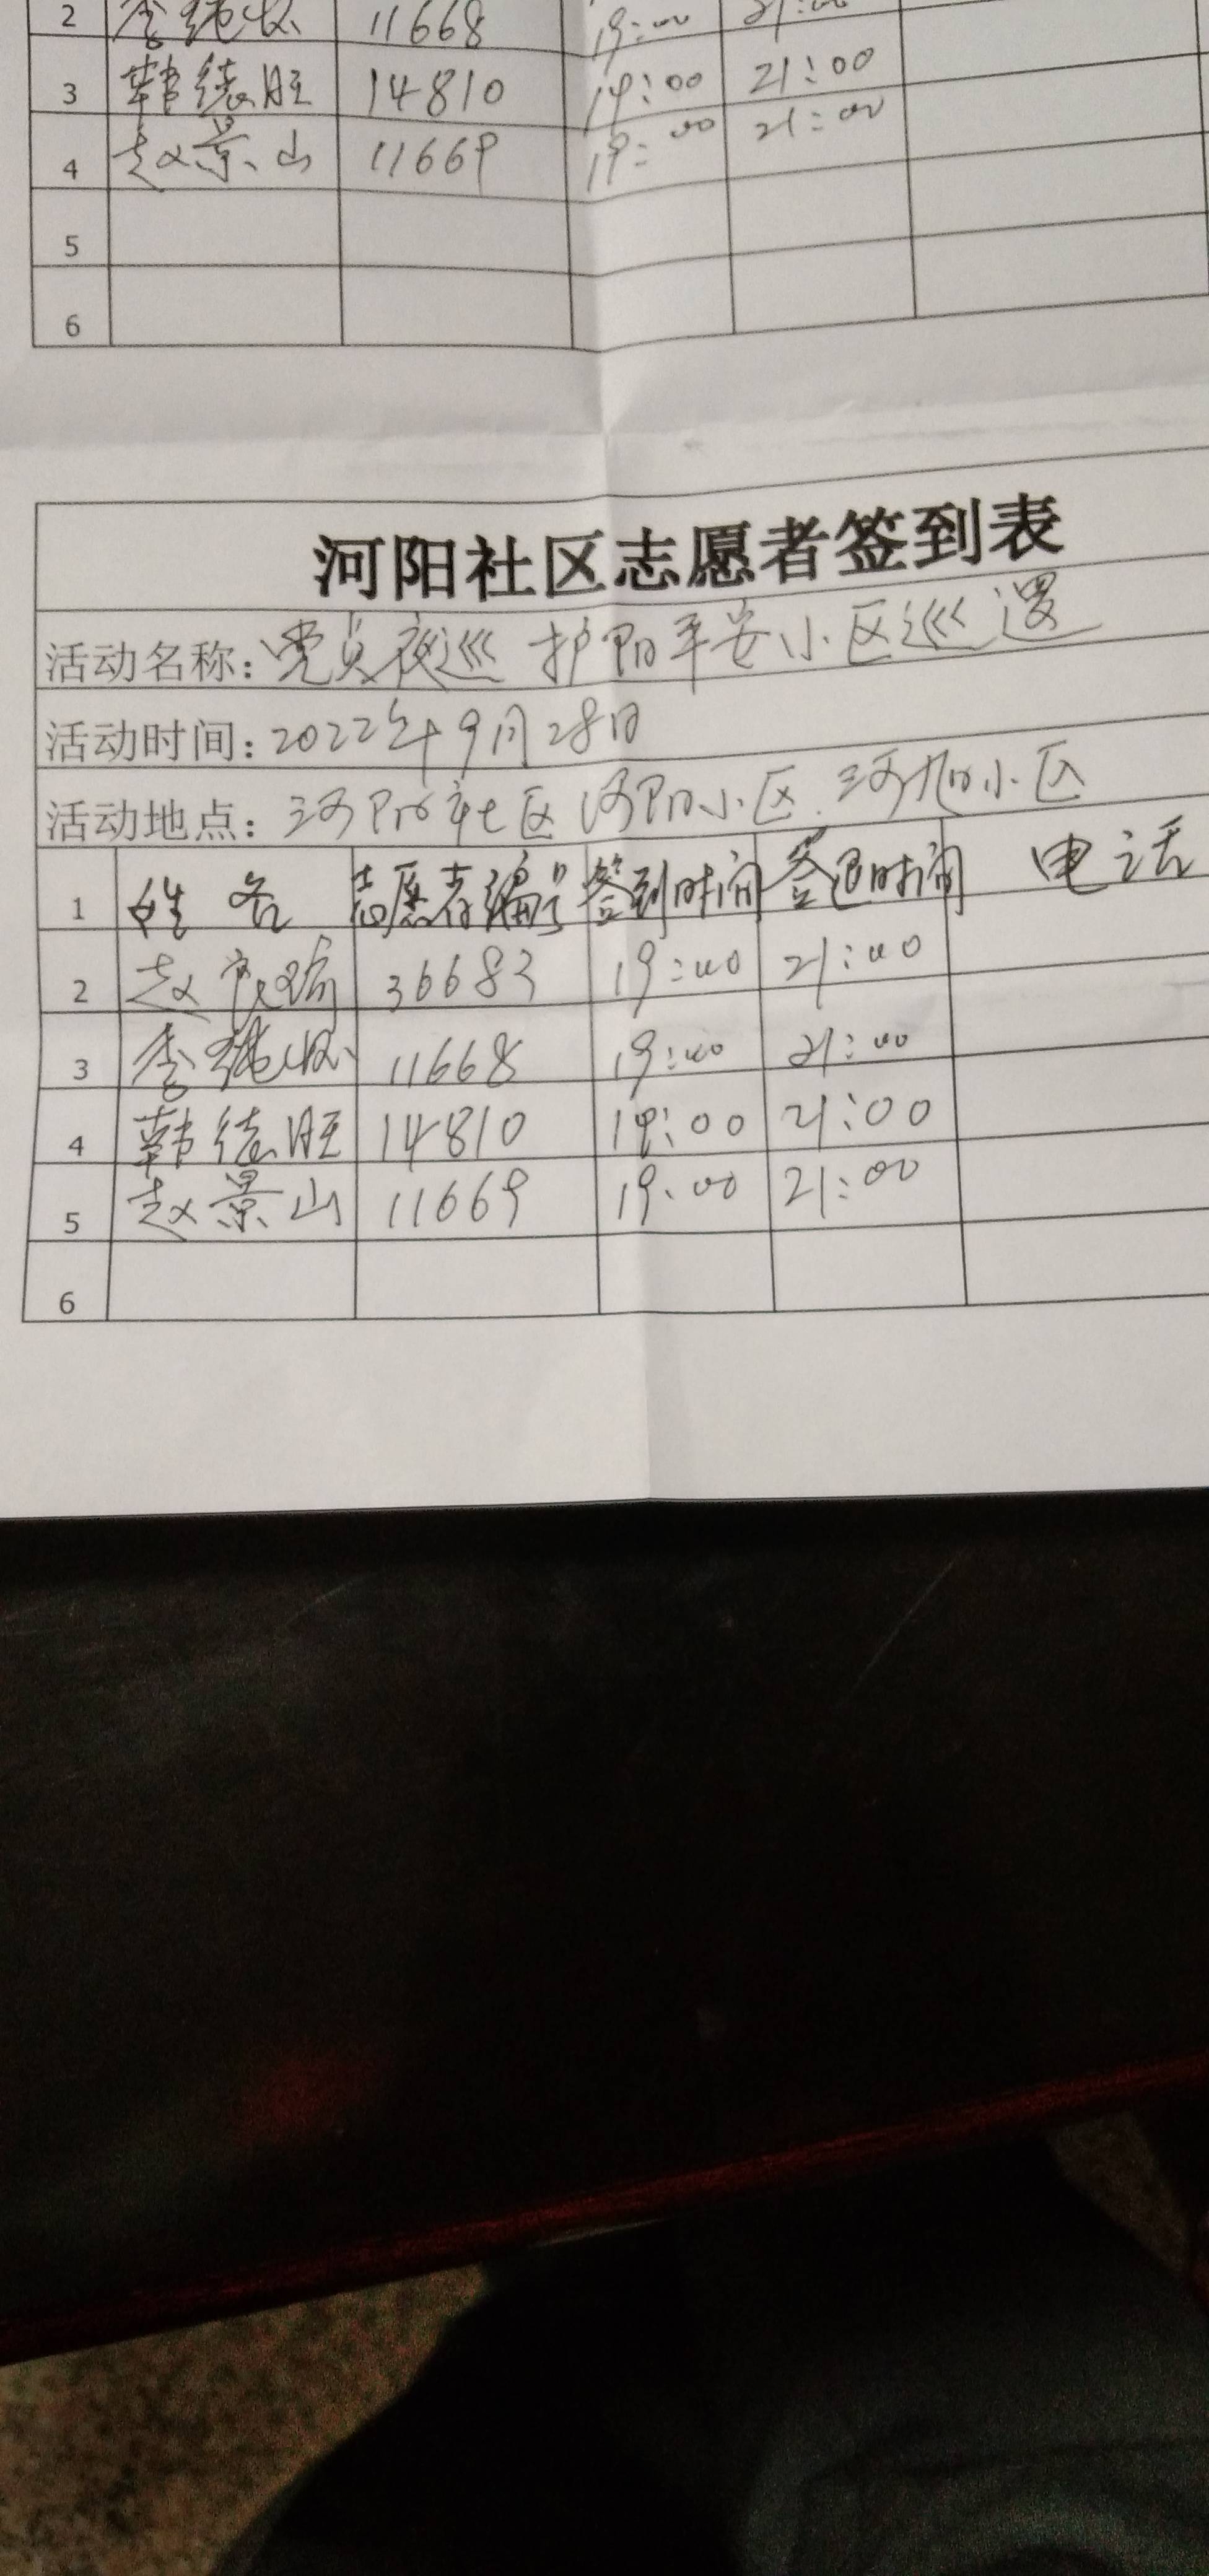 2 李纯 11668 19:00 21:00
3 韩德旺 14810 19:00 21:00
4 赵景山 11669 19:00 21:00
5
6
河阳社区志愿者签到表
活动名称:党员夜巡 护阳平安小区巡逻
活动时间:2022年9月28日
活动地点:河阳社区 河阳小区.河旭小区
1 姓名 志愿者编号 签到时间 签退时间 电话
2 赵 36683 19:00 21:00
3 李纯 11668 19:00 21:00
4 韩德旺 14810 19:00 21:00
5 赵景山 11669 19:00 21:00
6